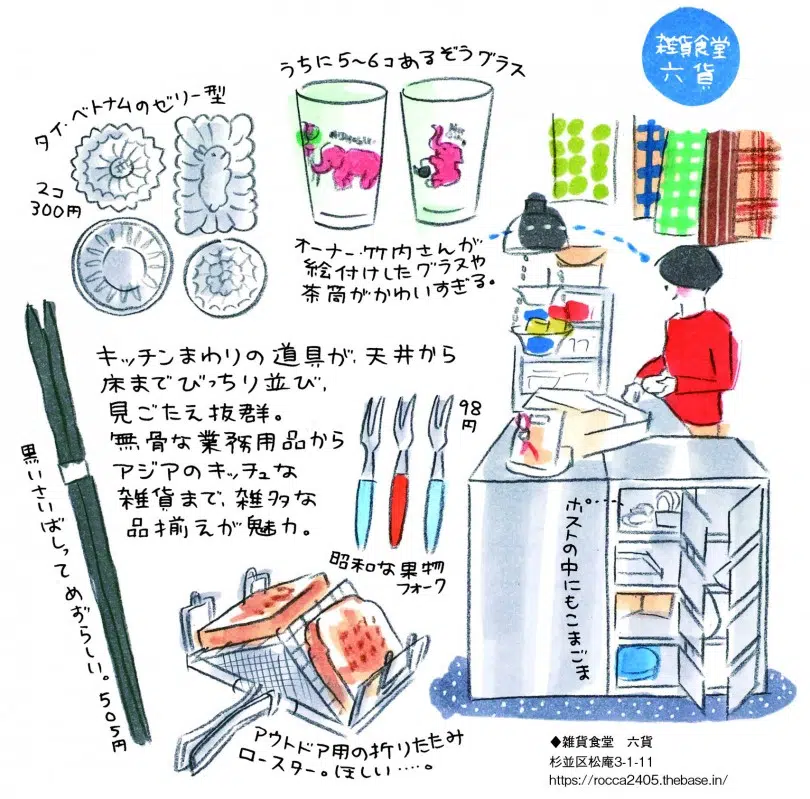 雑貨食堂
六貨
うちに5〜6コあるぞうグラス
タイ・ベトナムのゼリー型
2コ
300円
オーナー・竹内さんが
絵付けしたグラスや
茶筒がかわいすぎる。
キッチンまわりの道具が、天井から
床までびっちり並び、
見ごたえ抜群。
無骨な業務用品から
アジアのキッチュな
雑貨まで、雑多な
品揃えが魅力。
98
円
昭和な果物
フォーク
黒いさいばしってめずらしい。505円
ポストの中にもこまごま
アウトドア用の折りたたみ
ロースター。ほしい……。
◆雑貨食堂　六貨
杉並区松庵3-1-11
https://rocca2405.thebase.in/